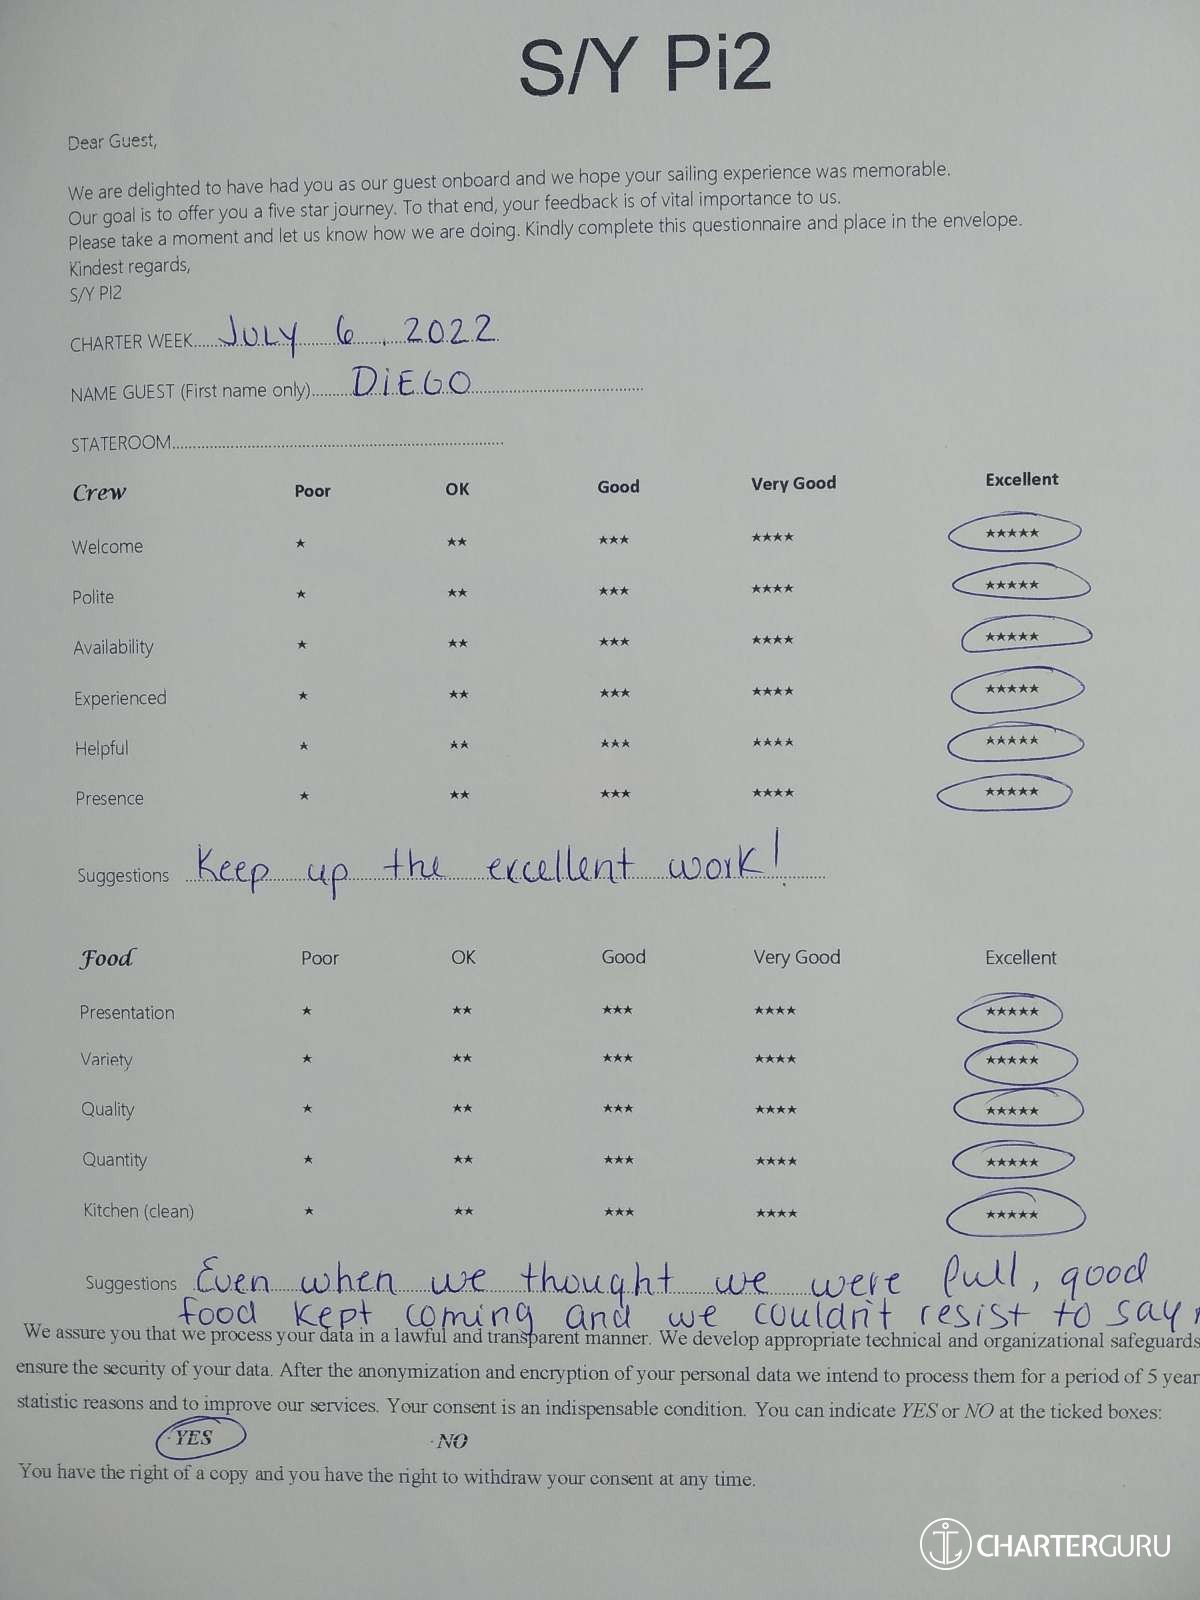 S/Y Pi2
Dear Guest,
We are delighted to have had you as our guest onboard and we hope your sailing experience was memorable.
Our goal is to offer you a five star journey. To that end, your feedback is of vital importance to us.
Please take a moment and let us know how we are doing. Kindly complete this questionnaire and place in the envelope.
Kindest regards,
S/Y PI2
CHARTER WEEK......JULY 6, 2022
NAME GUEST (First name only)......DiEGO
STATEROOM......
Crew Poor OK Good Very Good Excellent
Welcome ★ ★★ ★★★ ★★★★ ★★★★★
Polite ★ ★★ ★★★ ★★★★ ★★★★★
Availability ★ ★★ ★★★ ★★★★ ★★★★★
Experienced ★ ★★ ★★★ ★★★★ ★★★★★
Helpful ★ ★★ ★★★ ★★★★ ★★★★★
Presence ★ ★★ ★★★ ★★★★ ★★★★★
Suggestions Keep up the excellent work!
Food Poor OK Good Very Good Excellent
Presentation ★ ★★ ★★★ ★★★★ ★★★★★
Variety ★ ★★ ★★★ ★★★★ ★★★★★
Quality ★ ★★ ★★★ ★★★★ ★★★★★
Quantity ★ ★★ ★★★ ★★★★ ★★★★★
Kitchen (clean) ★ ★★ ★★★ ★★★★ ★★★★★
Suggestions Even when we thought we were full, good
food kept coming and we couldn't resist to say
We assure you that we process your data in a lawful and transparent manner. We develop appropriate technical and organizational safeguards
ensure the security of your data. After the anonymization and encryption of your personal data we intend to process them for a period of 5 year
statistic reasons and to improve our services. Your consent is an indispensable condition. You can indicate YES or NO at the ticked boxes:
·YES ·NO
You have the right of a copy and you have the right to withdraw your consent at any time.
CHARTERGURU